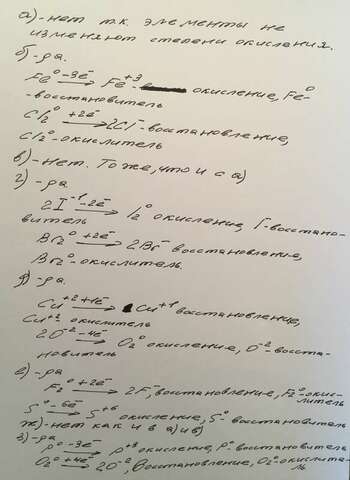 а)-нет т.к. элементы не
изменяют степени окисления.
б)-да.
Fe⁰ -3e⁻→ Fe⁺³- окисление, Fe⁰-
-восстановитель
Cl₂⁰ +2e⁻→ 2Cl⁻-восстановление,
Cl₂⁰-окислитель
в)-нет. Тоже, что и с а)
г)-да.
2I⁻¹ -2e⁻→ I₂⁰ окисление, I⁻-восстано-
витель
Br₂⁰ +2e⁻→ 2Br⁻ восстановление,
Br₂⁰-окислитель.
д)-да.
Cu⁺² +1e⁻→ Cu⁺¹ восстановление,
Cu⁺² окислитель
2O⁻² -4e⁻→ O₂⁰ окисление, O⁻²-восста-
новитель
е)-да
F₂⁰ +2e⁻→ 2F⁻, восстановление, F₂⁰-окис-
литель
S⁰ -6e⁻→ S⁺⁶ окисление, S⁰-восстановитель
ж)-нет как и в а) и в)
з)-да
P⁰ -3e⁻→ P⁺³ окисление, P⁰-восстановитель
O₂⁰ +4e⁻→ 2O⁻², восстановление, O₂⁰-окислитель